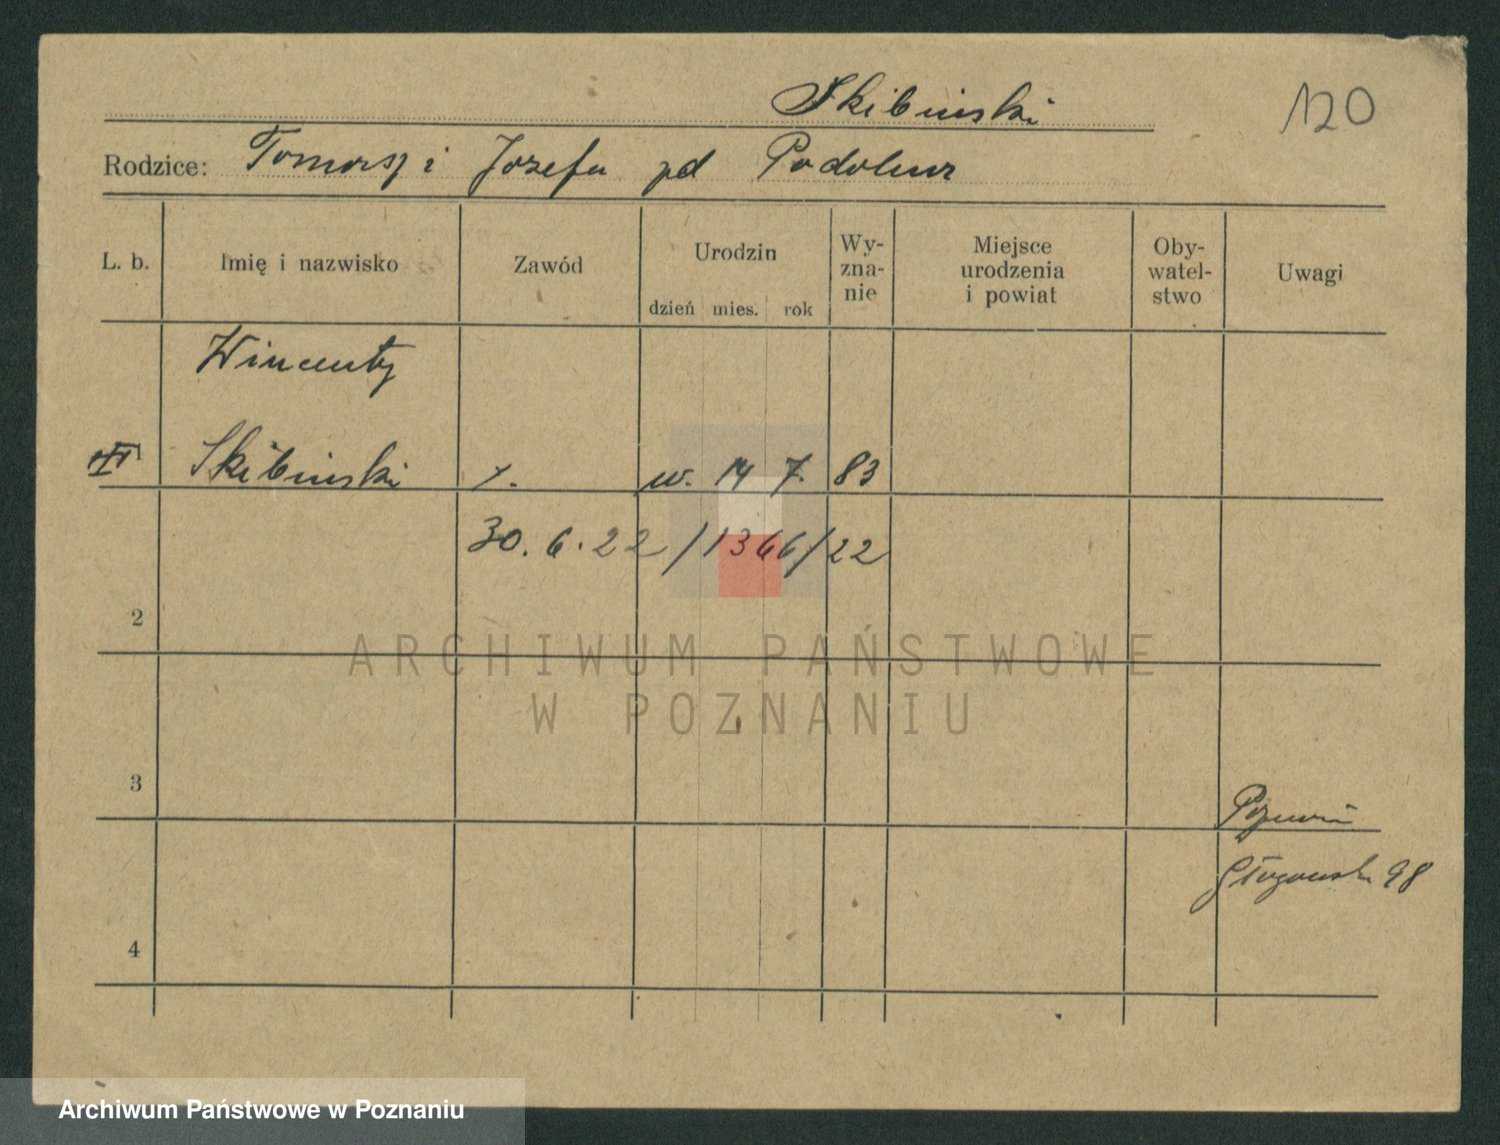 Skibinski
120
Rodzice: Tomasz i Jozefa zd
L. b. Imię i nazwisko Zawód Urodzin dzień mies. rok Wy-zna-nie Miejsce urodzenia i powiat Oby-watel-stwo Uwagi
Wincenty
Skibinski w. 14 7. 83
30. 6. 22 /1366/22
2
ARCHIWUM PAŃSTWOWE
W POZNANIU
3
Poznań
4
98
Archiwum Państwowe w Poznaniu